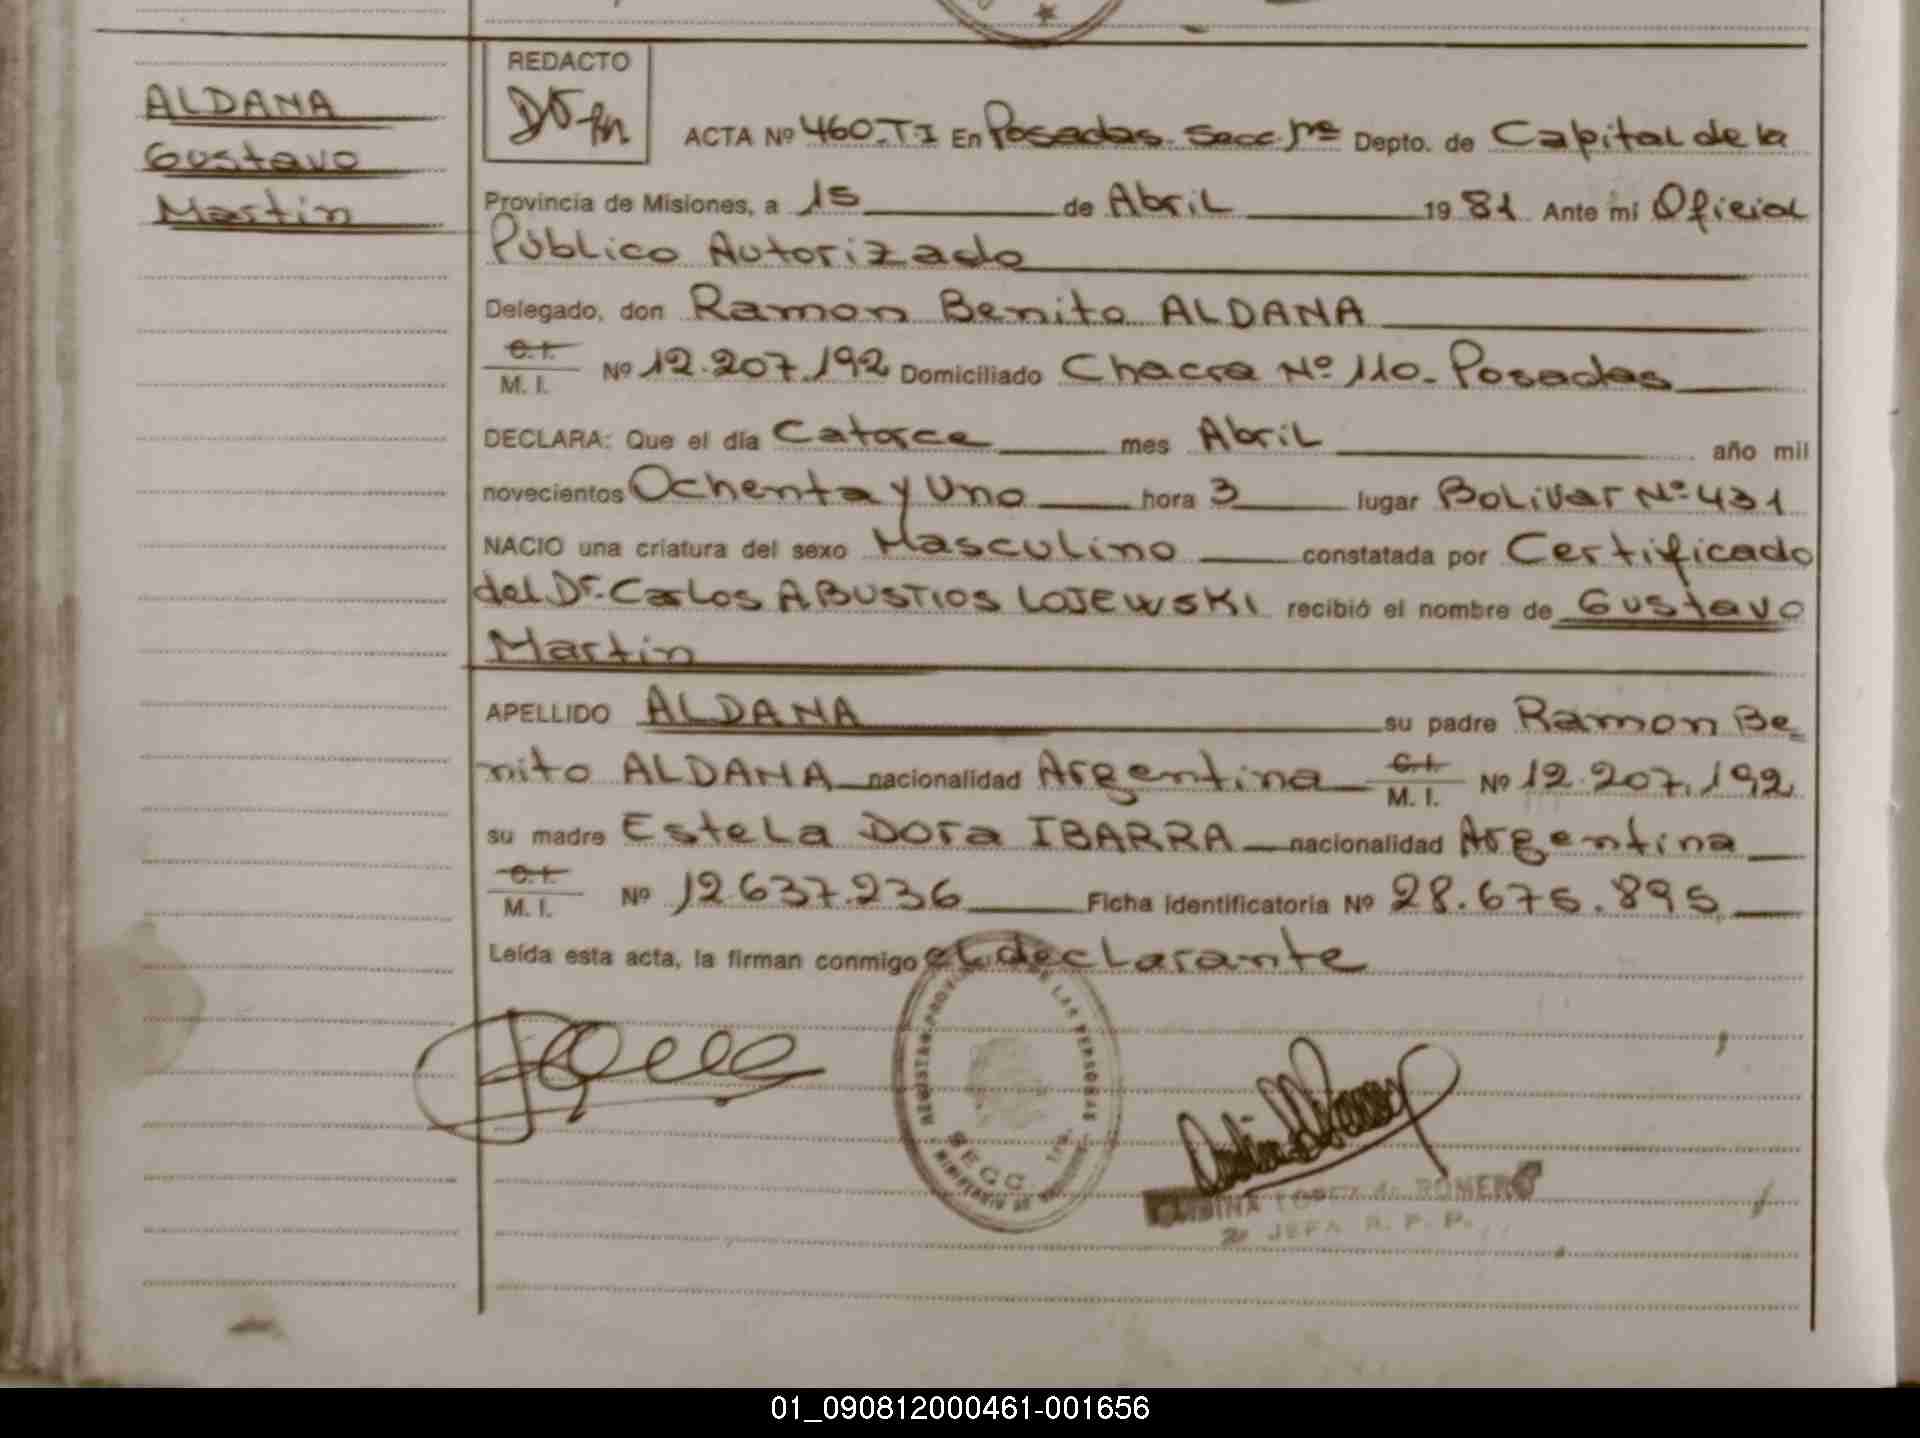 ALDANA
Gustavo
Martin
REDACTO
ACTA Nº 460.TI En Posadas. Secc. 1ra Depto. de Capital de la
Provincia de Misiones, a 15 de Abril 1981 Ante mi Oficial
Público Autorizado
Delegado, don Ramon Benito ALDANA
C.I.
M. I. Nº 12.207.192 Domiciliado Chacra Nº 110. Posadas
DECLARA: Que el día Catorce mes Abril año mil
novecientos Ochenta y Uno hora 3 lugar Bolivar Nº 431
NACIO una criatura del sexo Masculino constatada por Certificado
del Dr. Carlos A BUSTIOS LOJEWSKI recibió el nombre de Gustavo
Martin
APELLIDO ALDANA su padre Ramon Be
nito ALDANA nacionalidad Argentina C.I. M. I. Nº 12.207.192
su madre Estela Dora IBARRA nacionalidad Argentina
C.I.
M. I. Nº 12.637.236 Ficha identificatoria Nº 28.675.895
Leída esta acta, la firman conmigo el declarante
LAS PERSONAS
SECC
LOPEZ de ROMERO
JEFA R. P. P.
01_090812000461-001656